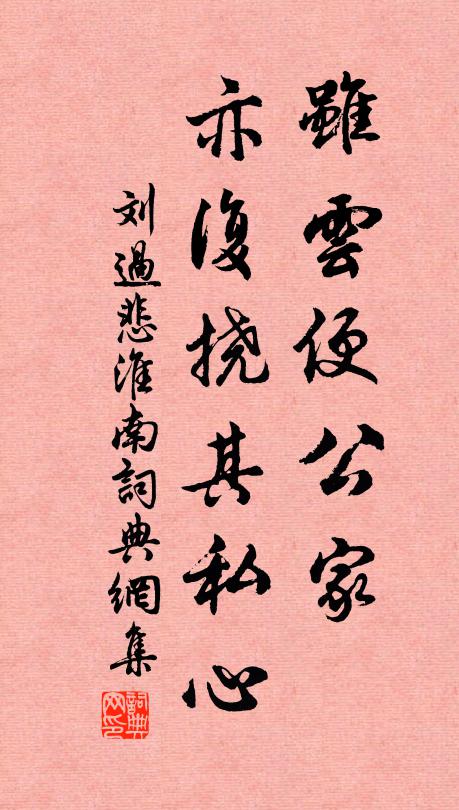 雖雲便公家
亦復挠其私心
刘過悲淮南詞典網集
詞典網印